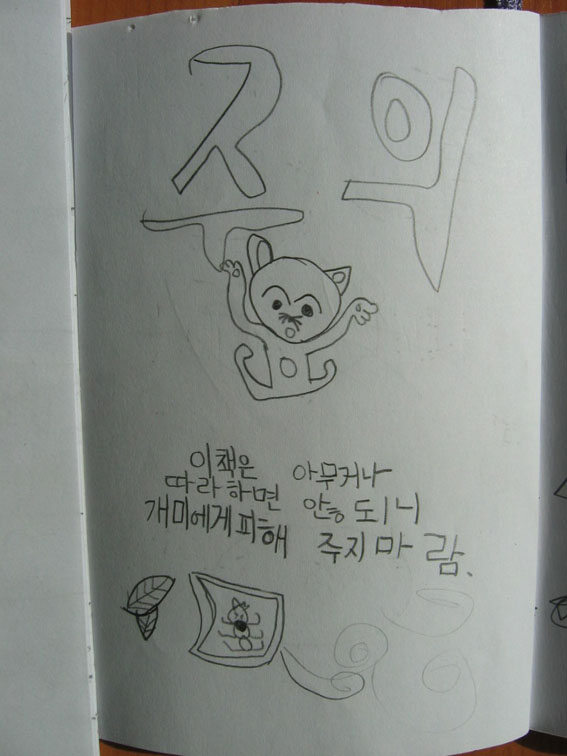 주의
이 책은 아무거나
따라하면 않 되니
개미에게 피해 주지 마 람.